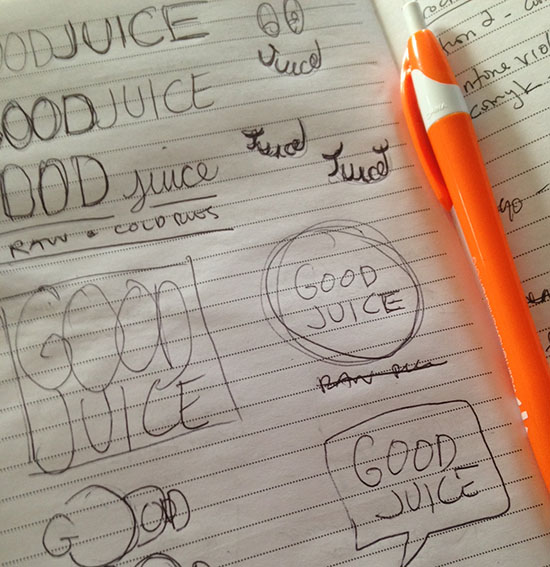 OODJUICE
Juice
GOODJUICE
Juice
Juice
OOD juice
RAW & COLD
GOOD
JUICE
GOOD
JUICE
RAW
GOOD
JUICE
GOOD
tion 2 -
ntone viol
cmyk